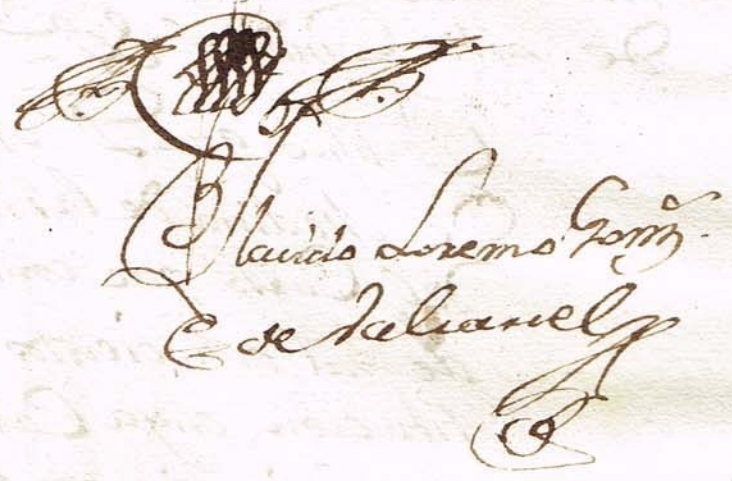 Placido Lorenzo Gomz
de Valcarcel